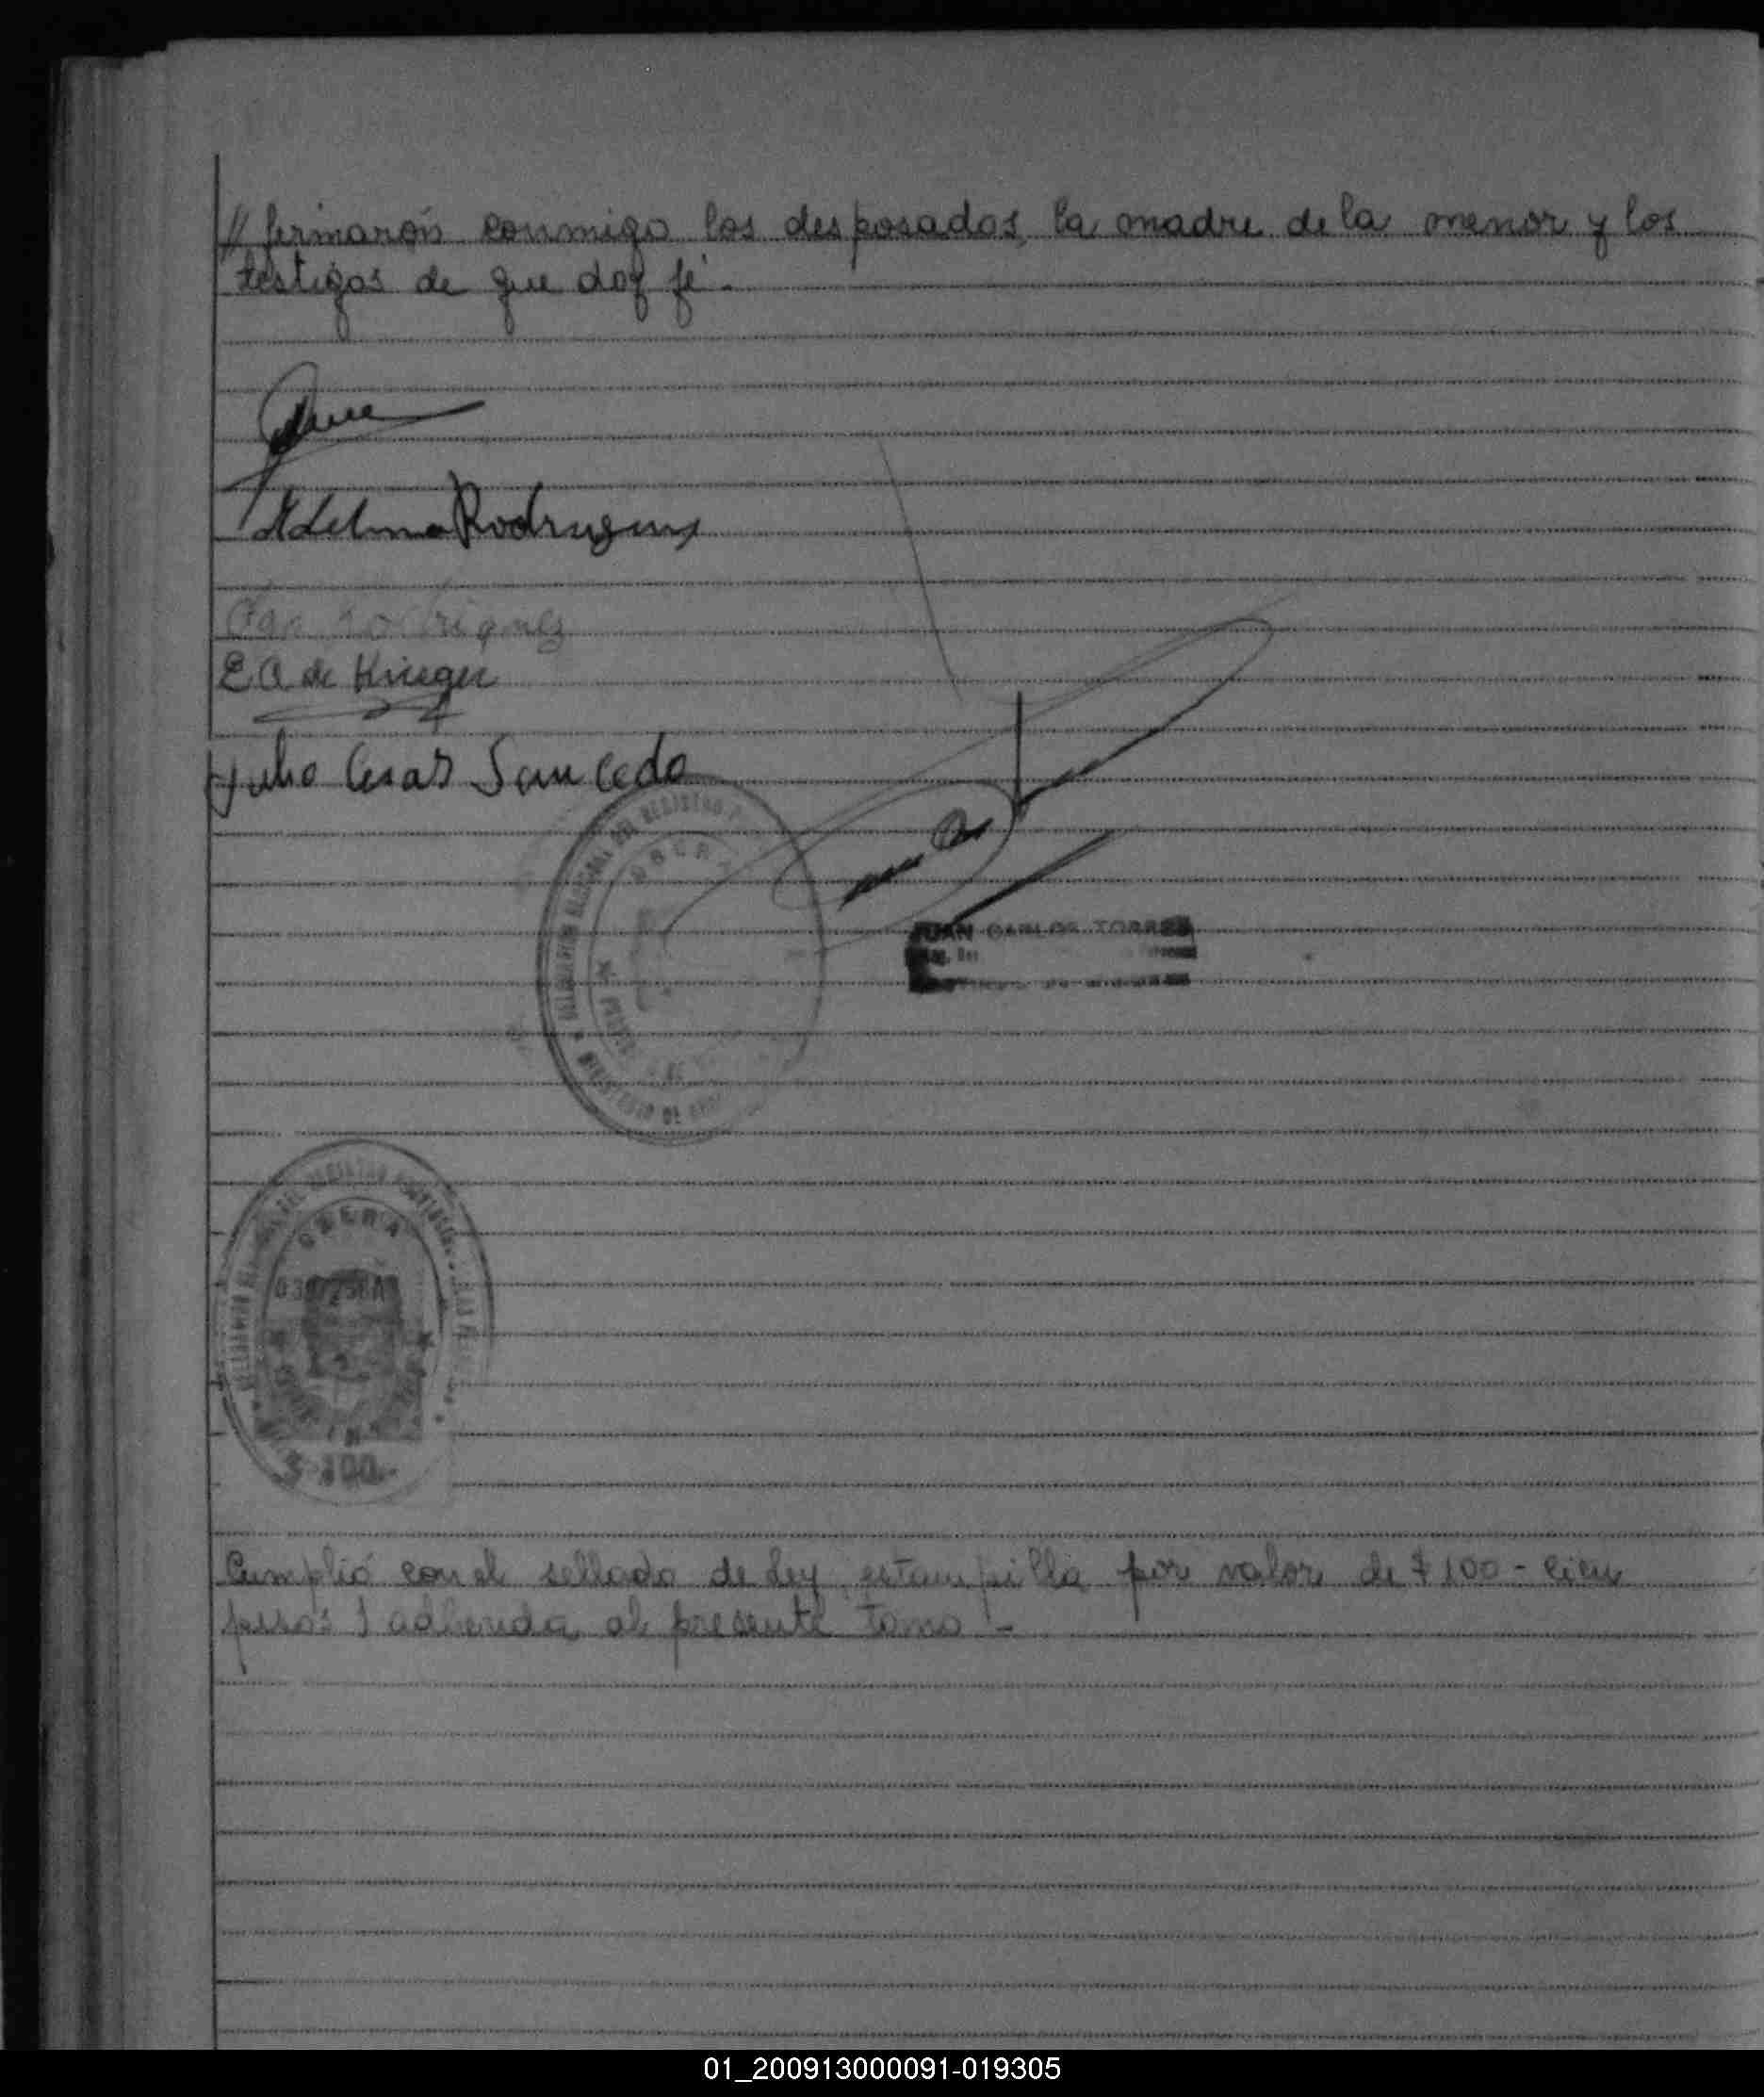 // firmarón conmigo los desposados, la madre de la menor y los
testigos de que doy fé.-
Adelma Rodriguez
rodriguez
E A de Krieger
Julio Cesar Saucedo
DEL REGISTRO
OBERA
JUAN CARLOS TORRES
DEL REGISTRO
OBERA
$ 100.-
Cumplió con el sellado de Ley, estampilla por valor de $ 100 - cien
pesos) adherida al presente tomo.-
01_200913000091-019305